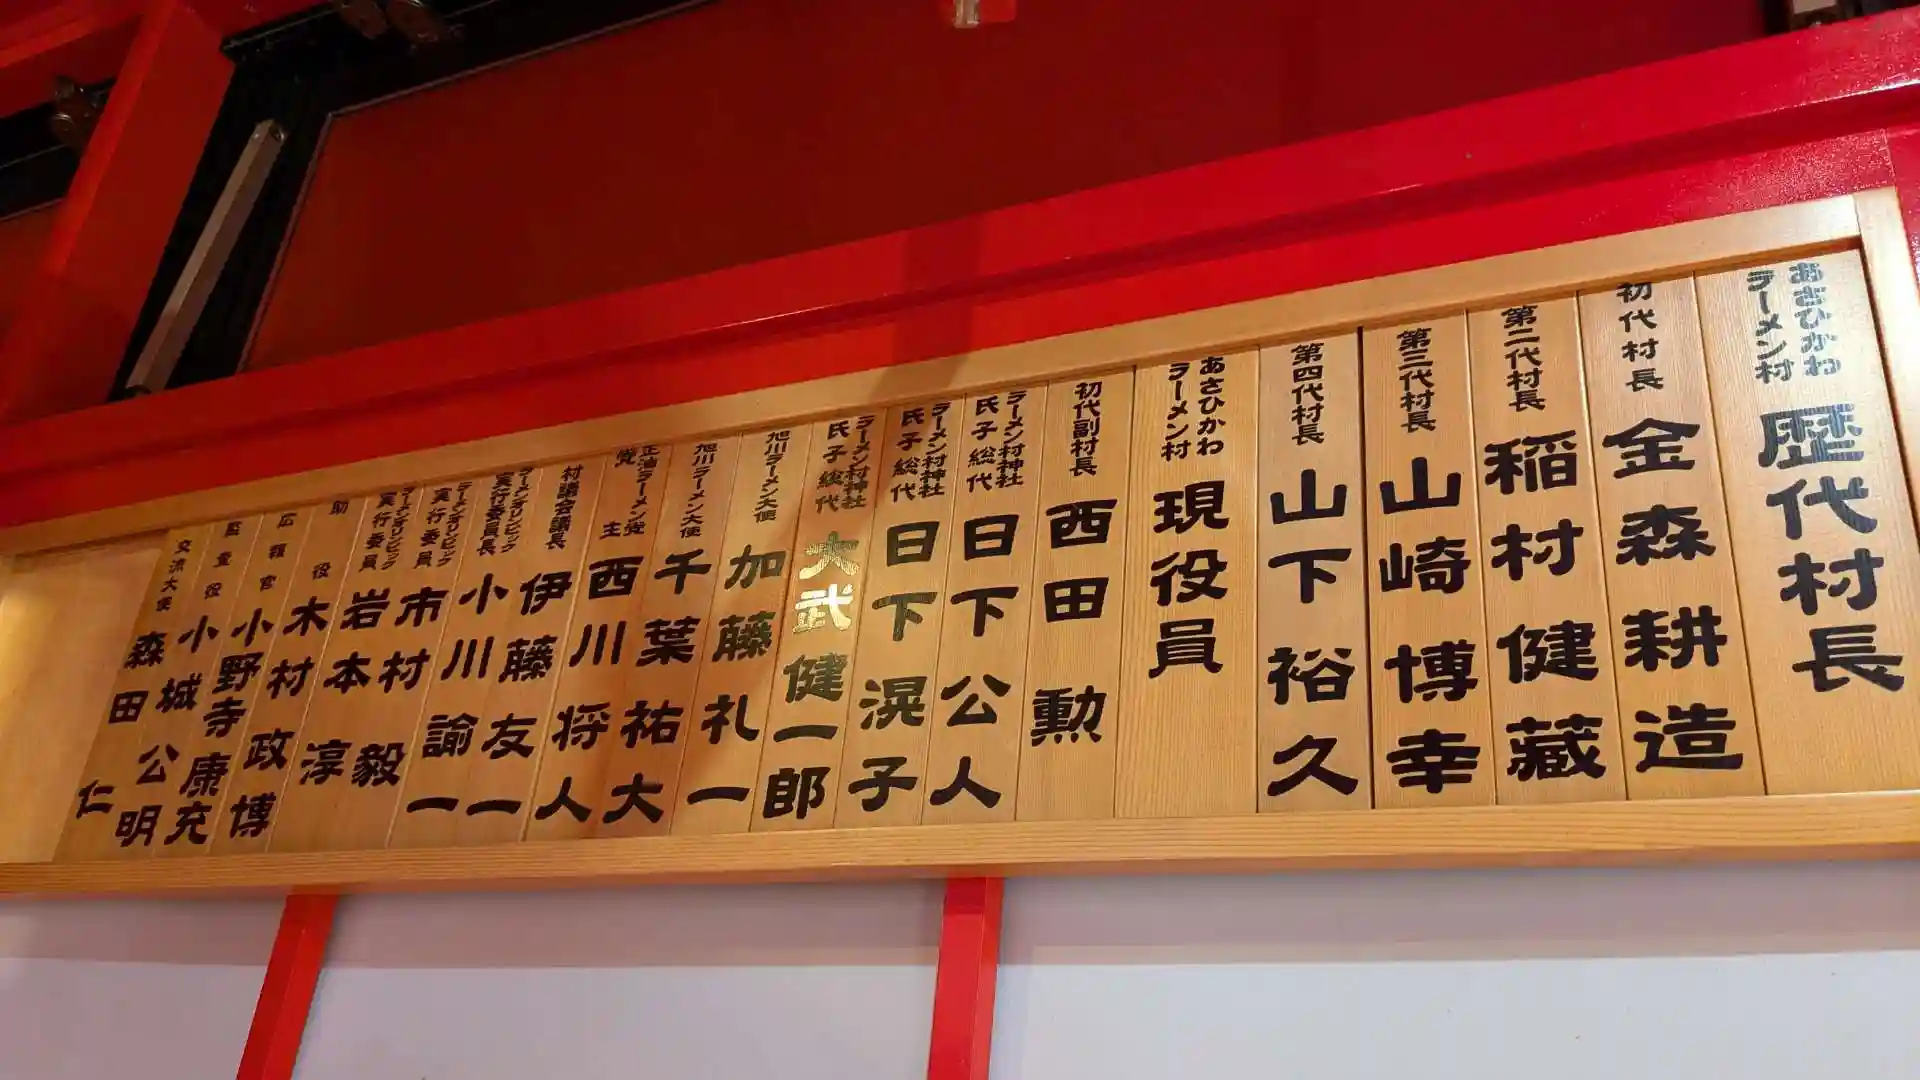 あさひかわ
ラーメン村
歴代村長
初代村長
金森耕造
第二代村長
稲村健藏
第三代村長
山崎博幸
第四代村長
山下裕久
あさひかわ
ラーメン村
現役員
初代副村長
西田勲
ラーメン村神社
氏子総代
日下公人
ラーメン村神社
氏子総代
日下滉子
ラーメン村神社
氏子総代
大武健一郎
旭川ラーメン大使
加藤礼一
旭川ラーメン大使
千葉祐大
正油ラーメン党
党主
西川将人
村議会議長
伊藤友一
ラーメンオリンピック
実行委員長
小川諭一
ラーメンオリンピック
実行委員
市村毅
ラーメンオリンピック
実行委員
岩本淳
助役
木村政博
広報官
小野寺康充
監査役
小城公明
交流大使
森田仁